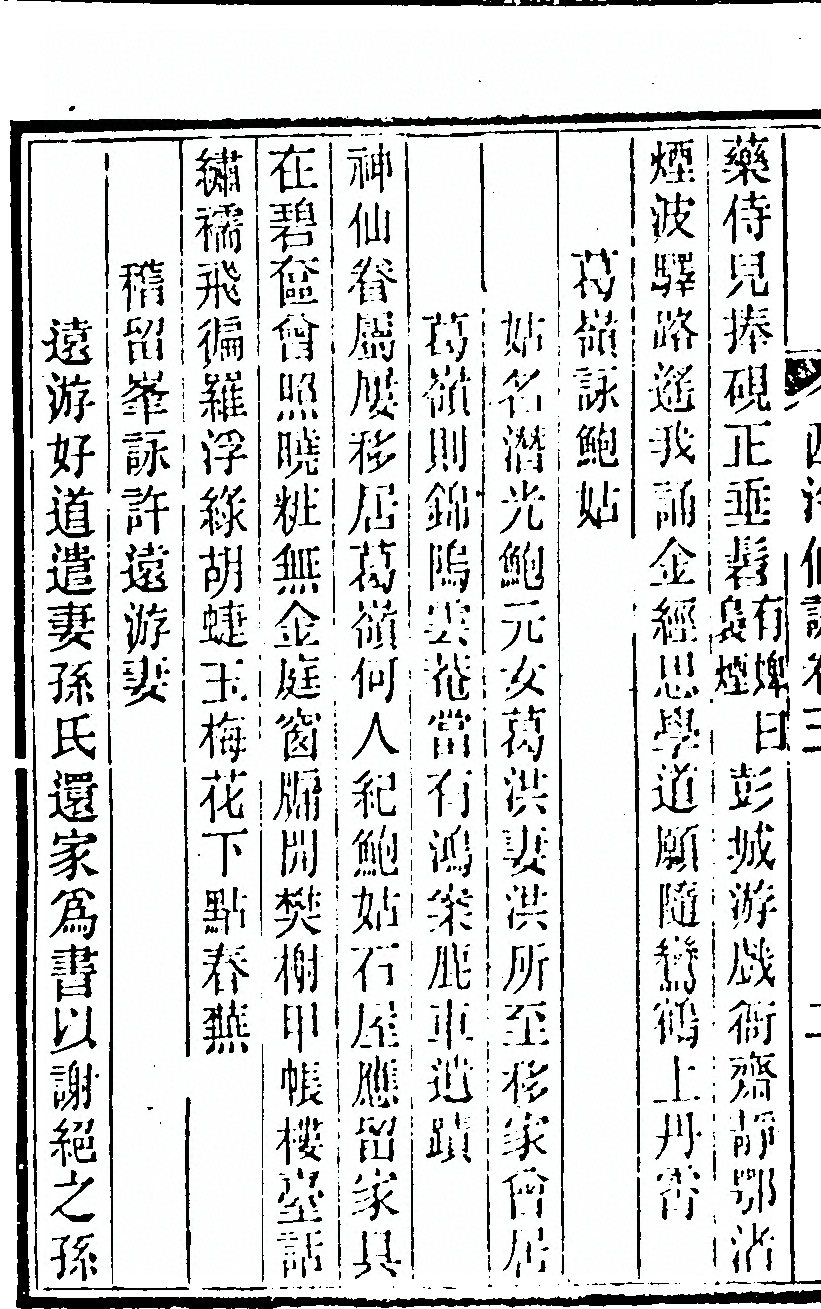 西泠仙詠卷三
藥侍兒捧硯正垂髫有婢曰裊煙彭城游戲衙齋靜鄂渚
煙波驛路遙我誦金經思學道願隨鸞鶴上丹霄
葛嶺詠鮑姑
姑名潛光鮑元女葛洪妻洪所至移家曾居
葛嶺則錦隝雲菴當有鴻案鹿車遺蹟
神仙眷屬屢移居葛嶺何人紀鮑姑石屋應留家具
在碧奩曾照曉粧無金庭窗牖開樊榭甲帳樓臺話
繡襦飛徧羅浮綠胡蜨玉梅花下點春蕪
稽留峯詠許遠游妻
遠游好道遣妻孫氏還家爲書以謝絕之孫